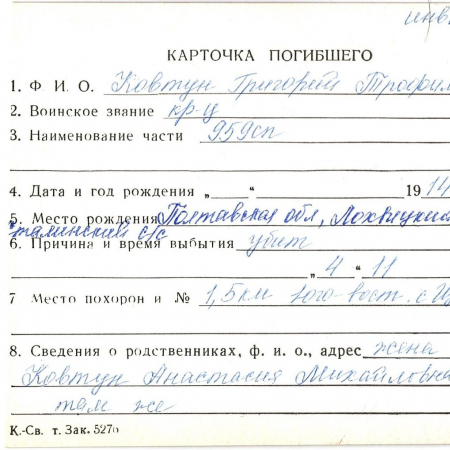 инв.
КАРТОЧКА ПОГИБШЕГО
1. Ф. И. О. Ковтун Григорий Трофим
2. Воинское звание кр-ц
3. Наименование части 959сп
4. Дата и год рождения „ “ 1914
5. Место рождения Полтавская обл, Лохвицкий
с/с
6. Причина и время выбытия убит
„ 4 “ 11
7 Место похорон и № 1,5 км юго-вост. с.
8. Сведения о родственниках, ф. и. о., адрес жена
Ковтун Анастасия Михайловна
там же
К.-Св. т. Зак. 527б